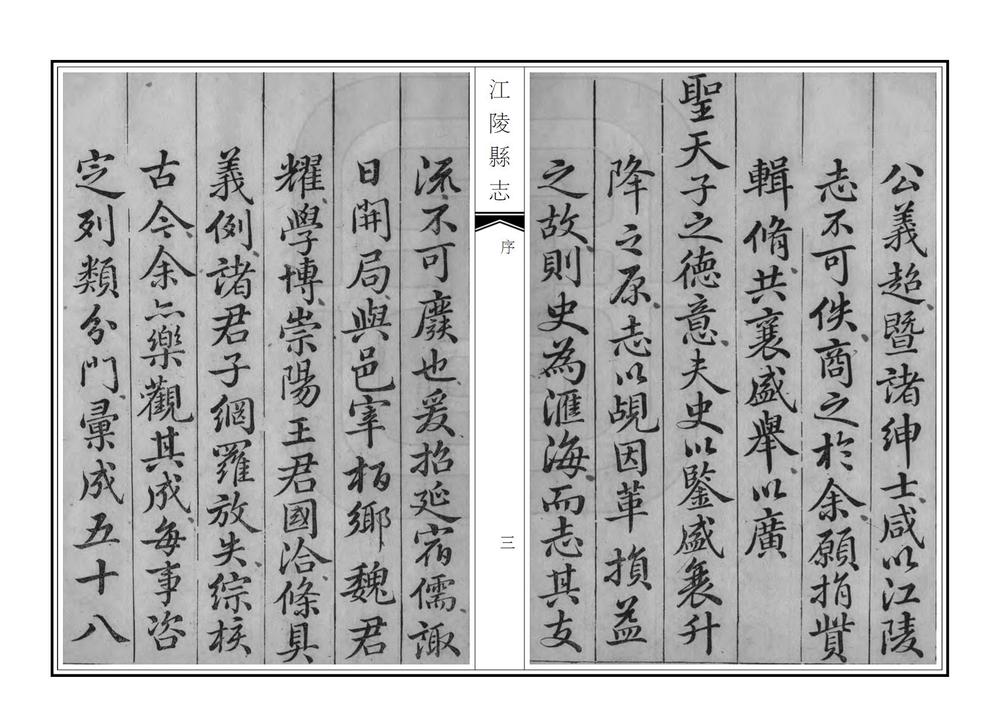 公義超暨諸紳士咸以江陵
志不可佚商之於余願捐貲
輯脩共襄盛舉以廣
聖天子之德意夫史以鑒盛衰升
降之原志以覘因革損益
之故則史為滙海而志其支
江陵縣志
序
三
流不可廢也爰招延宿儒諏
日開局與邑宰栢鄉魏君
耀學博崇陽王君國洽條具
義例諸君子網羅放失綜核
古今余亦樂觀其成每事咨
定列類分門彙成五十八